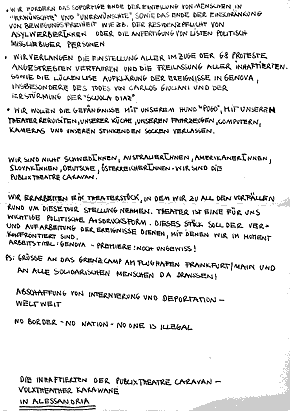 • WIR FORDERN DAS SOFORTIGE ENDE DER EINTEILUNG VON MENSCHEN IN
"ERWÜNSCHTE" UND "UNERWÜNSCHTE", SOWIE DAS ENDE DER EINSCHRÄNKUNG
VON BEWEGUNGSFREIHEIT WIE ZB. DER RESIDENZPFLICHT VON
ASYLWERBERINNEN ODER DIE ANFERTIGUNG VON LISTEN POLITISCH
MISSLIEBIGER PERSONEN
• WIR VERLANGEN DIE EINSTELLUNG ALLER IM ZUGE DER G8 PROTESTE
ANGESTREBTEN VERFAHREN UND DIE FREILASSUNG ALLER INHAFTIERTEN.
SOWIE DIE LÜCKENLOSE AUFKLÄRUNG DER EREIGNISSE IN GENOVA,
INSBESONDERE DES TODES VON CARLOS GIULIANI UND DER
ERSTÜRMUNG DER "SCUOLA DIAZ"
• WIR WOLLEN DIE GEFÄNGNISSE MIT UNSEREM HUND "POGO", MIT UNSEREN
THEATERREQUISITEN, UNSERER KÜCHE, UNSEREN FAHRZEUGEN, COMPUTERN,
KAMERAS UND UNSEREN STINKENDEN SOCKEN VERLASSEN.
WIR SIND NICHT SCHWEDINNEN, AUSTRALIERINNEN, AMERIKANERINNEN,
SLOWAKINNEN, DEUTSCHE, ÖSTERREICHERINNEN - WIR SIND DIE
PUBLIXTHEATRE CARAVAN.
WIR ERARBEITEN EIN THEATERSTÜCK, IN DEM WIR ZU ALL DEN VORFÄLLEN
RUND UM DIESE TOUR STELLUNG NEHMEN. THEATER IST EINE FÜR UNS
WICHTIGE POLITISCHE AUSDRUCKSFORM. DIESES STÜCK SOLL DER VER-
UND AUFARBEITUNG DER EREIGNISSE DIENEN, MIT DENEN WIR IM MOMENT
KONFRONTIERT SIND.
ARBEITSTITEL: GENOVA - PREMIERE: NOCH UNGEWISS!
PS: GRÜSSE AN DAS GRENZCAMP AM FLUGHAFEN FRANKFURT/MAIN UND
AN ALLE SOLIDARISCHEN MENSCHEN DA DRAUSSEN!
ABSCHAFFUNG VON INTERNIERUNG UND DEPORTATION -
WELTWEIT
NO BORDER - NO NATION - NO ONE IS ILLEGAL
DIE INHAFTIERTEN DER PUBLIXTHEATRE CARAVAN -
VOLXTHEATER KARAWANE
IN ALESSANDRIA